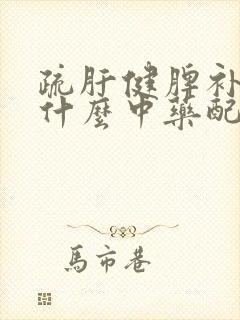 疏肝健脾补
什麼中藥配
馬市巷